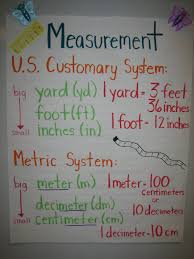 Measurement
U.S. Customary System:
big yard (yd) 1 yard = 3 feet
36 inches
foot (ft)
small inches (in) 1 foot = 12 inches
Metric System:
big meter (m) 1 meter = 100
centimeters
or
decimeter (dm) 10 decimeters
small centimeter (cm)
1 decimeter = 10 cm